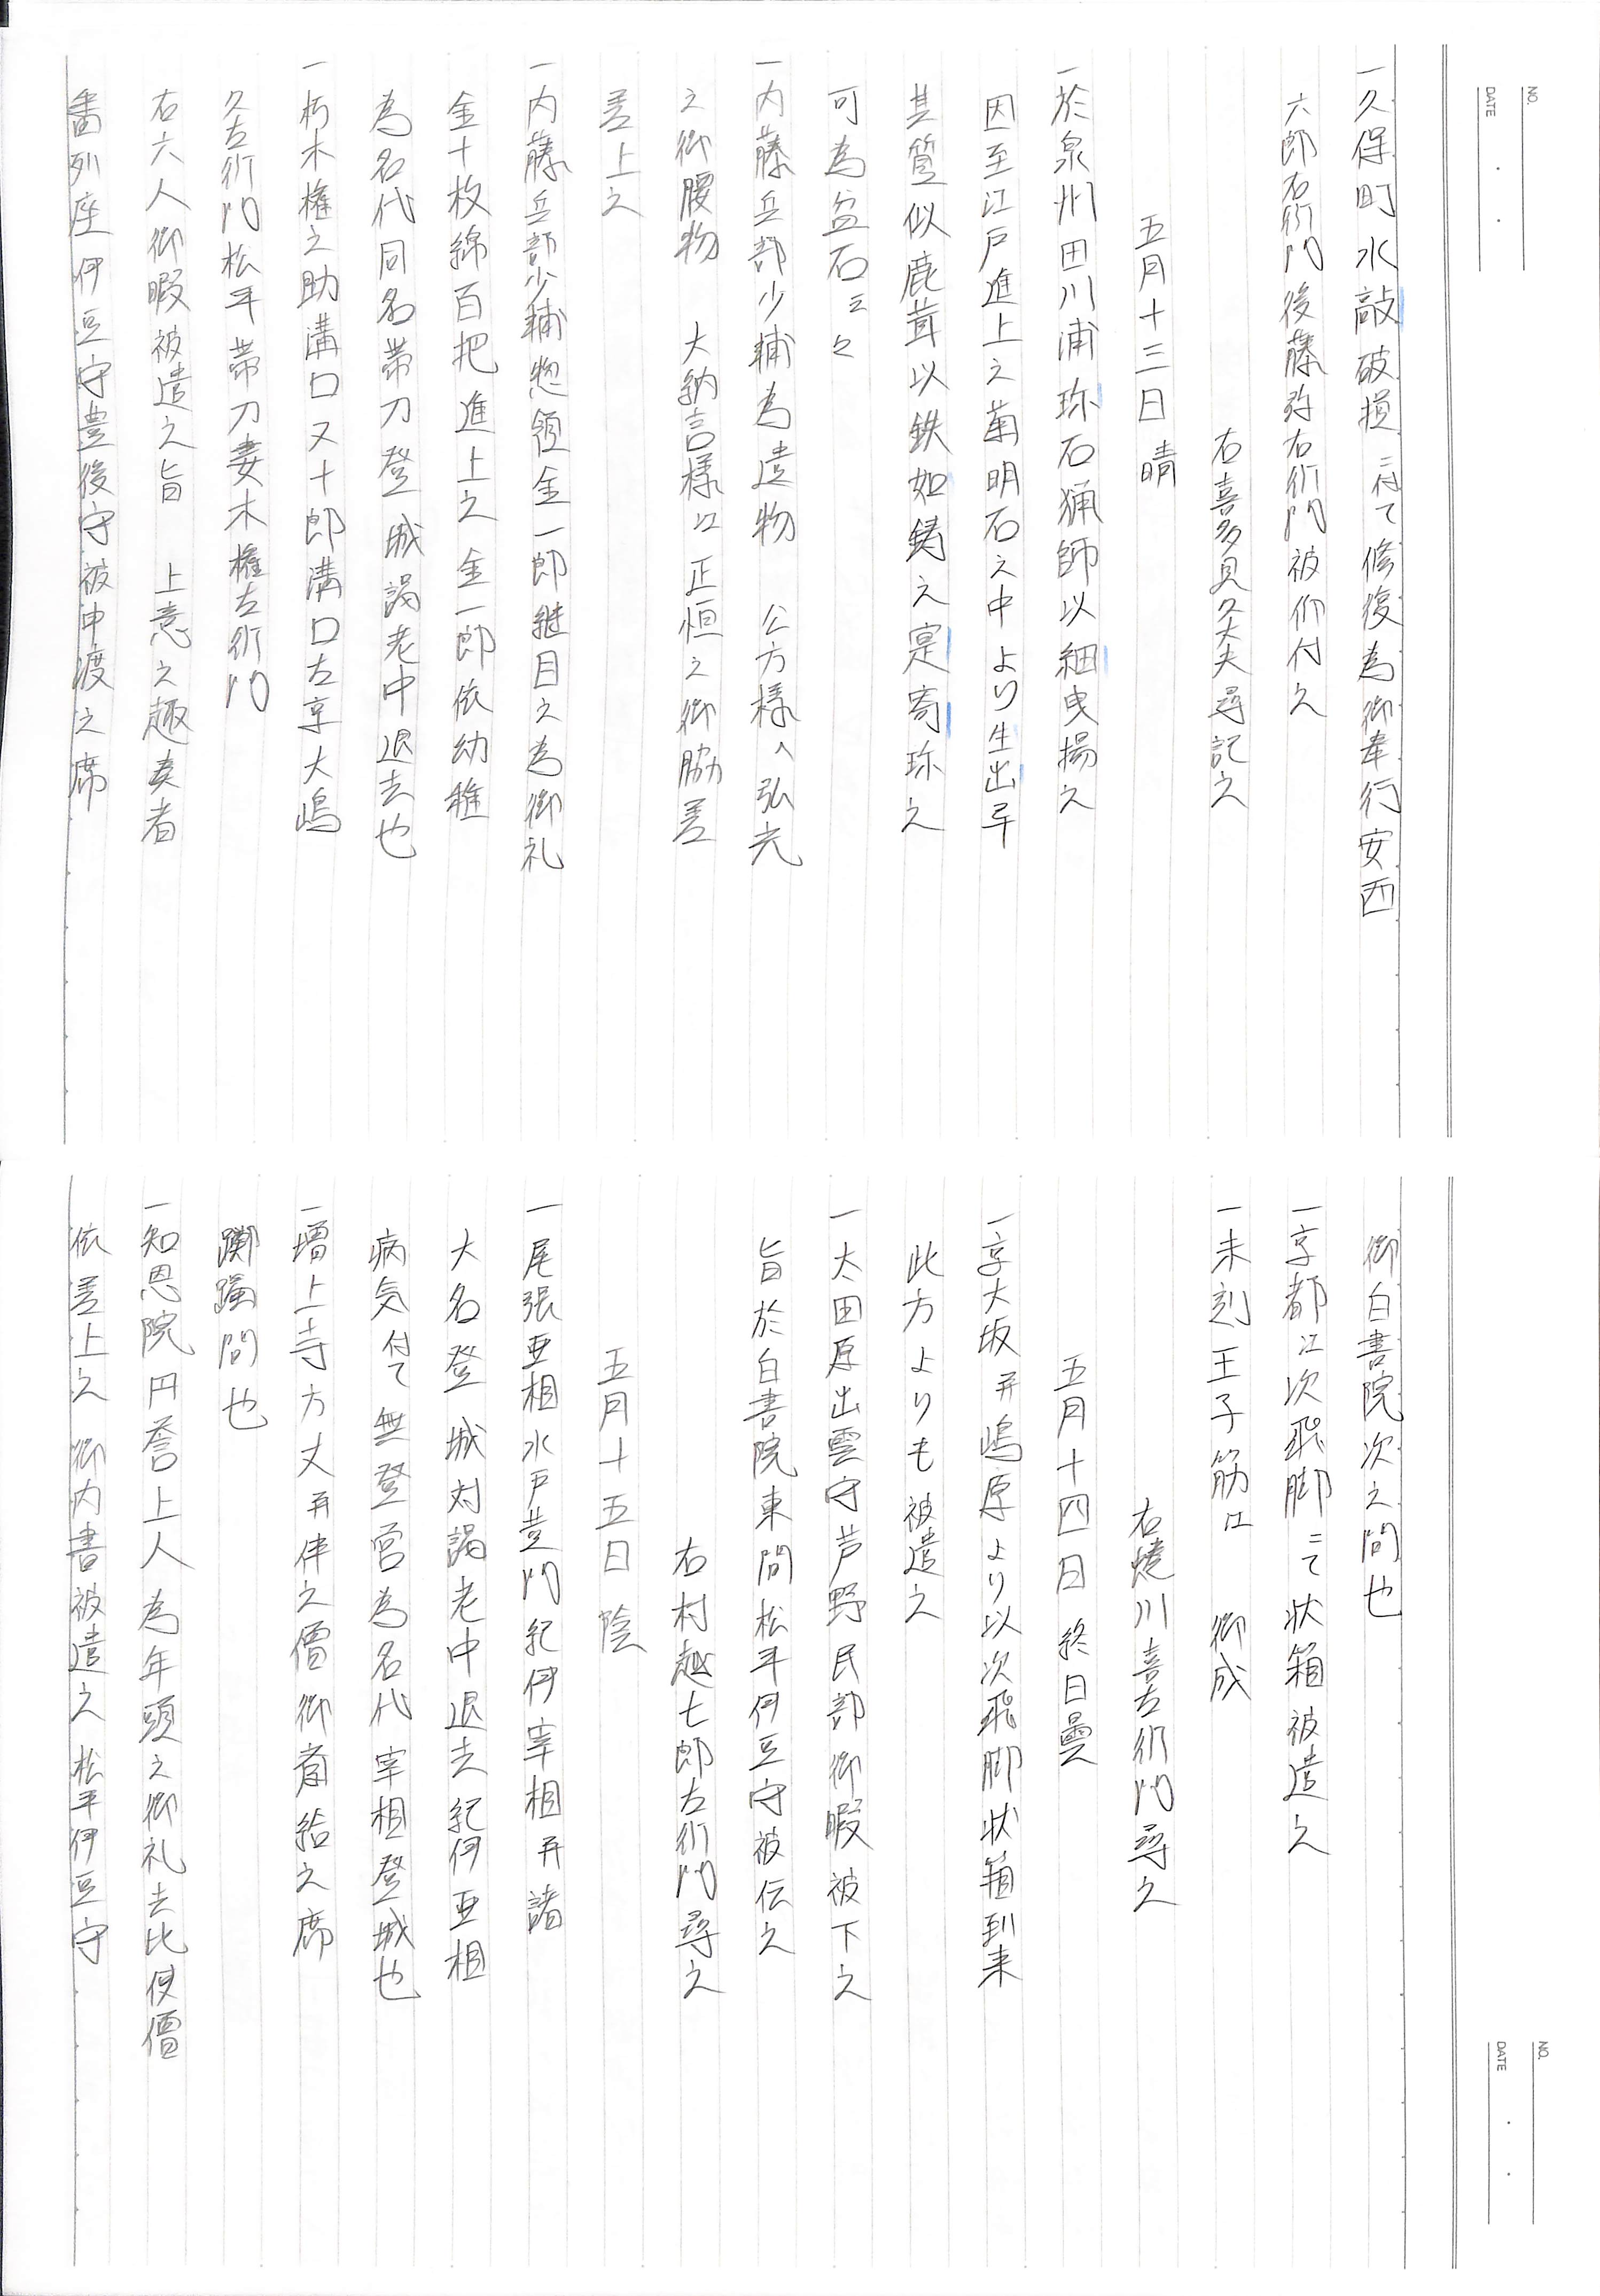 一久保町水敲破損ニ付て修復為御奉行安西
六郎右衛門後藤弥右衛門被仰付之
右喜多見久太夫尋記之
五月十三日 晴
一於泉州田川浦珎石猟師以細曳揚之
因至江戸進上之菊明石之中より生出畢
其質似鹿茸以鉄如鋳之寔寄珎之
可為盆石云々
一内藤兵部少輔為遺物 公方様へ弘光
之御腰物 大納言様江正恒之御脇差
差上之
一内藤兵部少輔惣領金一郎継目之為御礼
金十枚綿百把進上之金一郎依幼稚
為名代同名帯刀登 城謁老中退去也
一朽木権之助溝口又十郎溝口左京大嶋
久左衛門松平帯刀妻木権左衛門
右六人御暇被遣之旨 上意之趣奏者
番列座伊豆守豊後守被申渡之席
御白書院次之間也
一京都江次飛脚ニて状箱被遣之
一未刻王子筋江 御成
右蜷川喜左衛門尋之
五月十四日 終日曇
一京大坂并嶋原より以次飛脚状箱到来
此方よりも被遣之
一大田原出雲守芦野民部御暇被下之
旨於白書院東間松平伊豆守被伝之
右村越七郎左衛門尋之
五月十五日 陰
一尾張亜相水戸黄門紀伊宰相并諸
大名登 城対謁老中退去紀伊亜相
病気付て無登営為名代宰相登城也
一増上寺方丈并伴之僧御斎給之席
躑躅間也
一知恩院円誉上人為年頭之御礼去比使僧
依差上之 御内書被遣之松平伊豆守
NO.
DATE
NO.
DATE